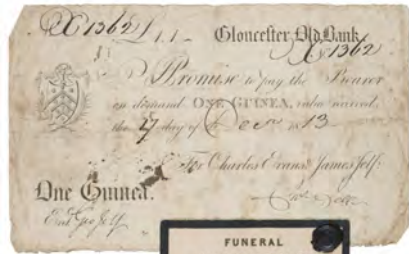 X1362 £1.1.- Gloucester Old Bank
X1362
I Promise to pay the Bearer
on demand ONE GUINEA, value received,
the 4 day of Decr 1813
For Charles Evans & James Jelf.
One Guinea.
Entd Geo Jelf
FUNERAL